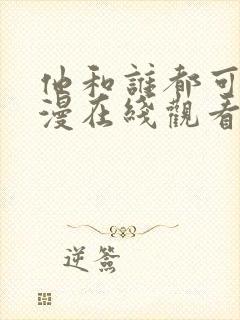 他和誰都可
漫在綫觀看
逆簽